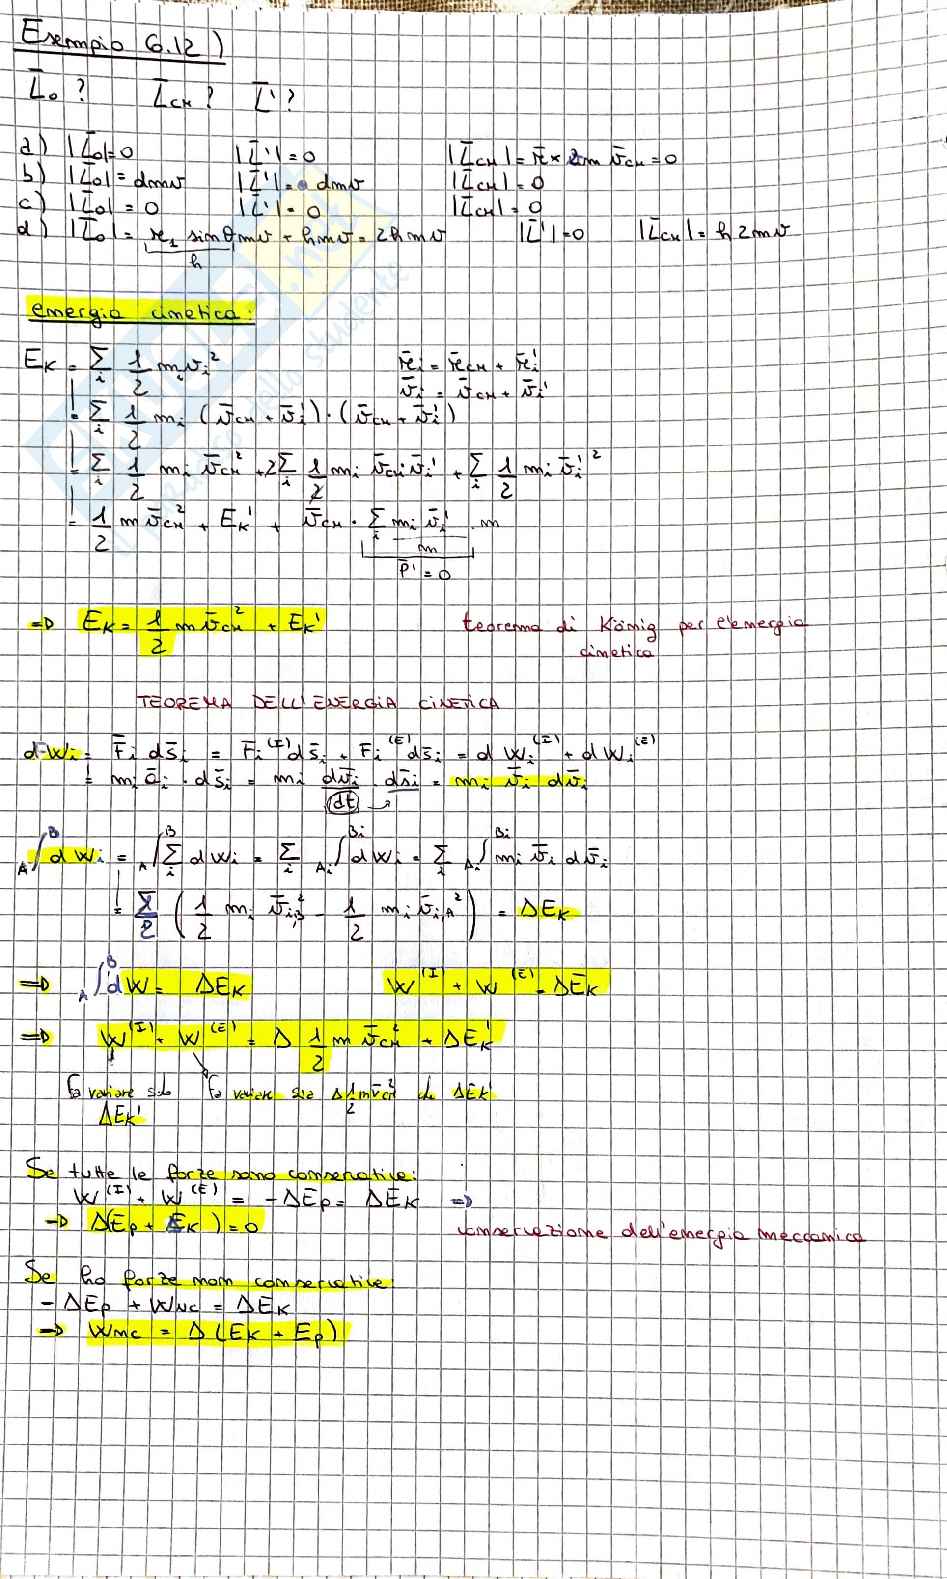 Esempio 6.12)
L̄₀ ? L̄cm ? L̄' ?
a) |L̄₀| = 0 |L̄'| = 0 |L̄cm| = r̄ × 2m v̄cm = 0
b) |L̄₀| = dmv |L̄'| = dmv |L̄cm| = 0
c) |L̄₀| = 0 |L̄'| = 0 |L̄cm| = 0
d) |L̄₀| = r₁ sinθ mv + hmv = 2hmv |L̄'| = 0 |L̄cm| = h2mv
h
energia cinetica:
Eₖ = Σᵢ 1/2 mᵢvᵢ² r̄ᵢ = r̄cm + r̄ᵢ'
v̄ᵢ = v̄cm + v̄ᵢ'
= Σᵢ 1/2 mᵢ (v̄cm + v̄ᵢ') · (v̄cm + v̄ᵢ')
= Σᵢ 1/2 mᵢ v̄cm² + 2Σᵢ 1/2 mᵢ v̄cm v̄ᵢ' + Σᵢ 1/2 mᵢ v̄ᵢ'²
= 1/2 m v̄cm² + Eₖ' + v̄cm · Σᵢ mᵢ v̄ᵢ' / m · m
P̄' = 0
⇒ Eₖ = 1/2 m v̄cm² + Eₖ' teorema di König per l'energia
cinetica
TEOREMA DELL'ENERGIA CINETICA
dWᵢ = F̄ᵢ ds̄ᵢ = F̄ᵢ⁽ᴵ⁾ds̄ᵢ + F̄ᵢ⁽ᴱ⁾ds̄ᵢ = dWᵢ⁽ᴵ⁾ + dWᵢ⁽ᴱ⁾
= mᵢ āᵢ · ds̄ᵢ = mᵢ dv̄ᵢ/dt · ds̄ᵢ = mᵢ v̄ᵢ dv̄ᵢ
A∫B dWᵢ = A∫B Σᵢ dWᵢ = Σᵢ Aᵢ∫Bᵢ dWᵢ = Σᵢ Aᵢ∫Bᵢ mᵢ v̄ᵢ dv̄ᵢ
= Σ (1/2 mᵢ v̄ᵢ,B² - 1/2 mᵢ v̄ᵢ,A²) = ΔEₖ
⇒ A∫B dW = ΔEₖ W⁽ᴵ⁾ + W⁽ᴱ⁾ = ΔEₖ
⇒ W⁽ᴵ⁾ + W⁽ᴱ⁾ = Δ 1/2 m v̄cm² + ΔEₖ'
Fa variare solo Fa variare sia Δ 1/2 m v̄cm² che ΔEₖ'
ΔEₖ'
Se tutte le forze sono conservative:
W⁽ᴵ⁾ + W⁽ᴱ⁾ = -ΔEp = ΔEₖ ⇒
⇒ Δ(Ep + Eₖ) = 0 conservazione dell'energia meccanica
Se ho forze non conservative:
- ΔEp + Wnc = ΔEₖ
⇒ Wnc = Δ (Eₖ + Ep)